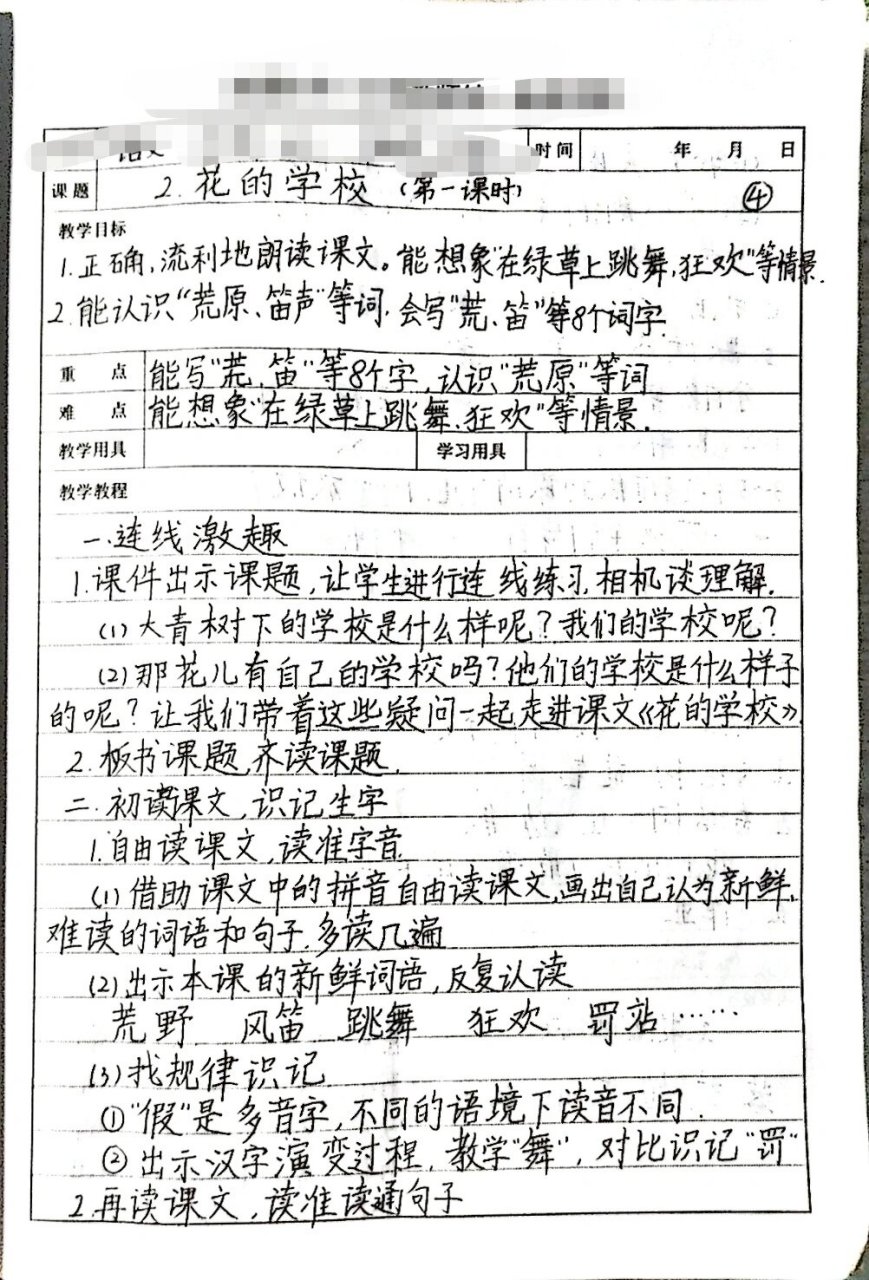 语文 时间 年 月 日
课题 2.花的学校(第一课时) ④
教学目标
1.正确,流利地朗读课文。能想象“在绿草上跳舞,狂欢”等情景.
2.能认识“荒原、笛声”等词.会写“荒、笛”等8个词字.
重 点 能写“荒、笛”等8个字,认识“荒原”等词
难 点 能想象“在绿草上跳舞、狂欢”等情景.
教学用具 学习用具
教学教程
一.连线激趣
1.课件出示课题,让学生进行连线练习,相机谈理解.
(1)大青树下的学校是什么样呢?我们的学校呢?
(2)那花儿有自己的学校吗?他们的学校是什么样子
的呢?让我们带着这些疑问一起走进课文《花的学校》
2.板书课题,齐读课题.
二.初读课文,识记生字
1.自由读课文,读准字音
(1)借助课文中的拼音自由读课文,画出自己认为新鲜、
难读的词语和句子,多读几遍
(2)出示本课的新鲜词语,反复认读
荒野 风笛 跳舞 狂欢 罚站……
(3)找规律识记
①“假”是多音字,不同的语境下读音不同.
②出示汉字演变过程,教学“舞”,对比识记“罚”
2.再读课文,读准读通句子